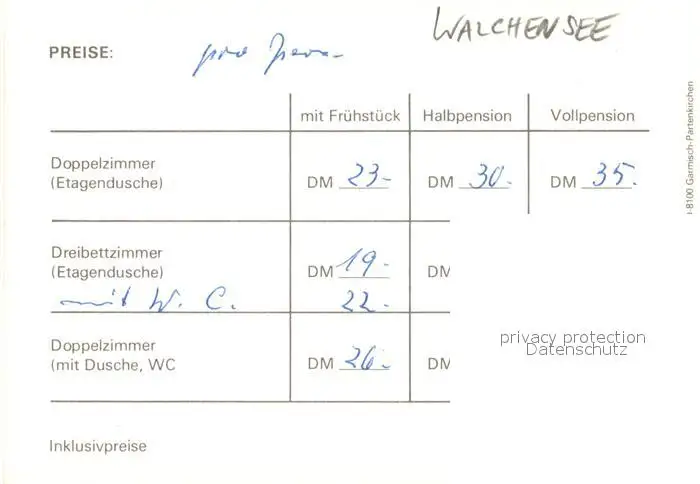 WALCHENSEE
PREISE: pro Pers.
mit Frühstück Halbpension Vollpension
Doppelzimmer
(Etagendusche) DM 23.- DM 30.- DM 35.
Dreibettzimmer
(Etagendusche) DM 19.- DM
mit W. C. 22.-
Doppelzimmer
(mit Dusche, WC DM 26.- DM
Inklusivpreise
-8100 Garmisch-Partenkirchen
privacy protection
Datenschutz